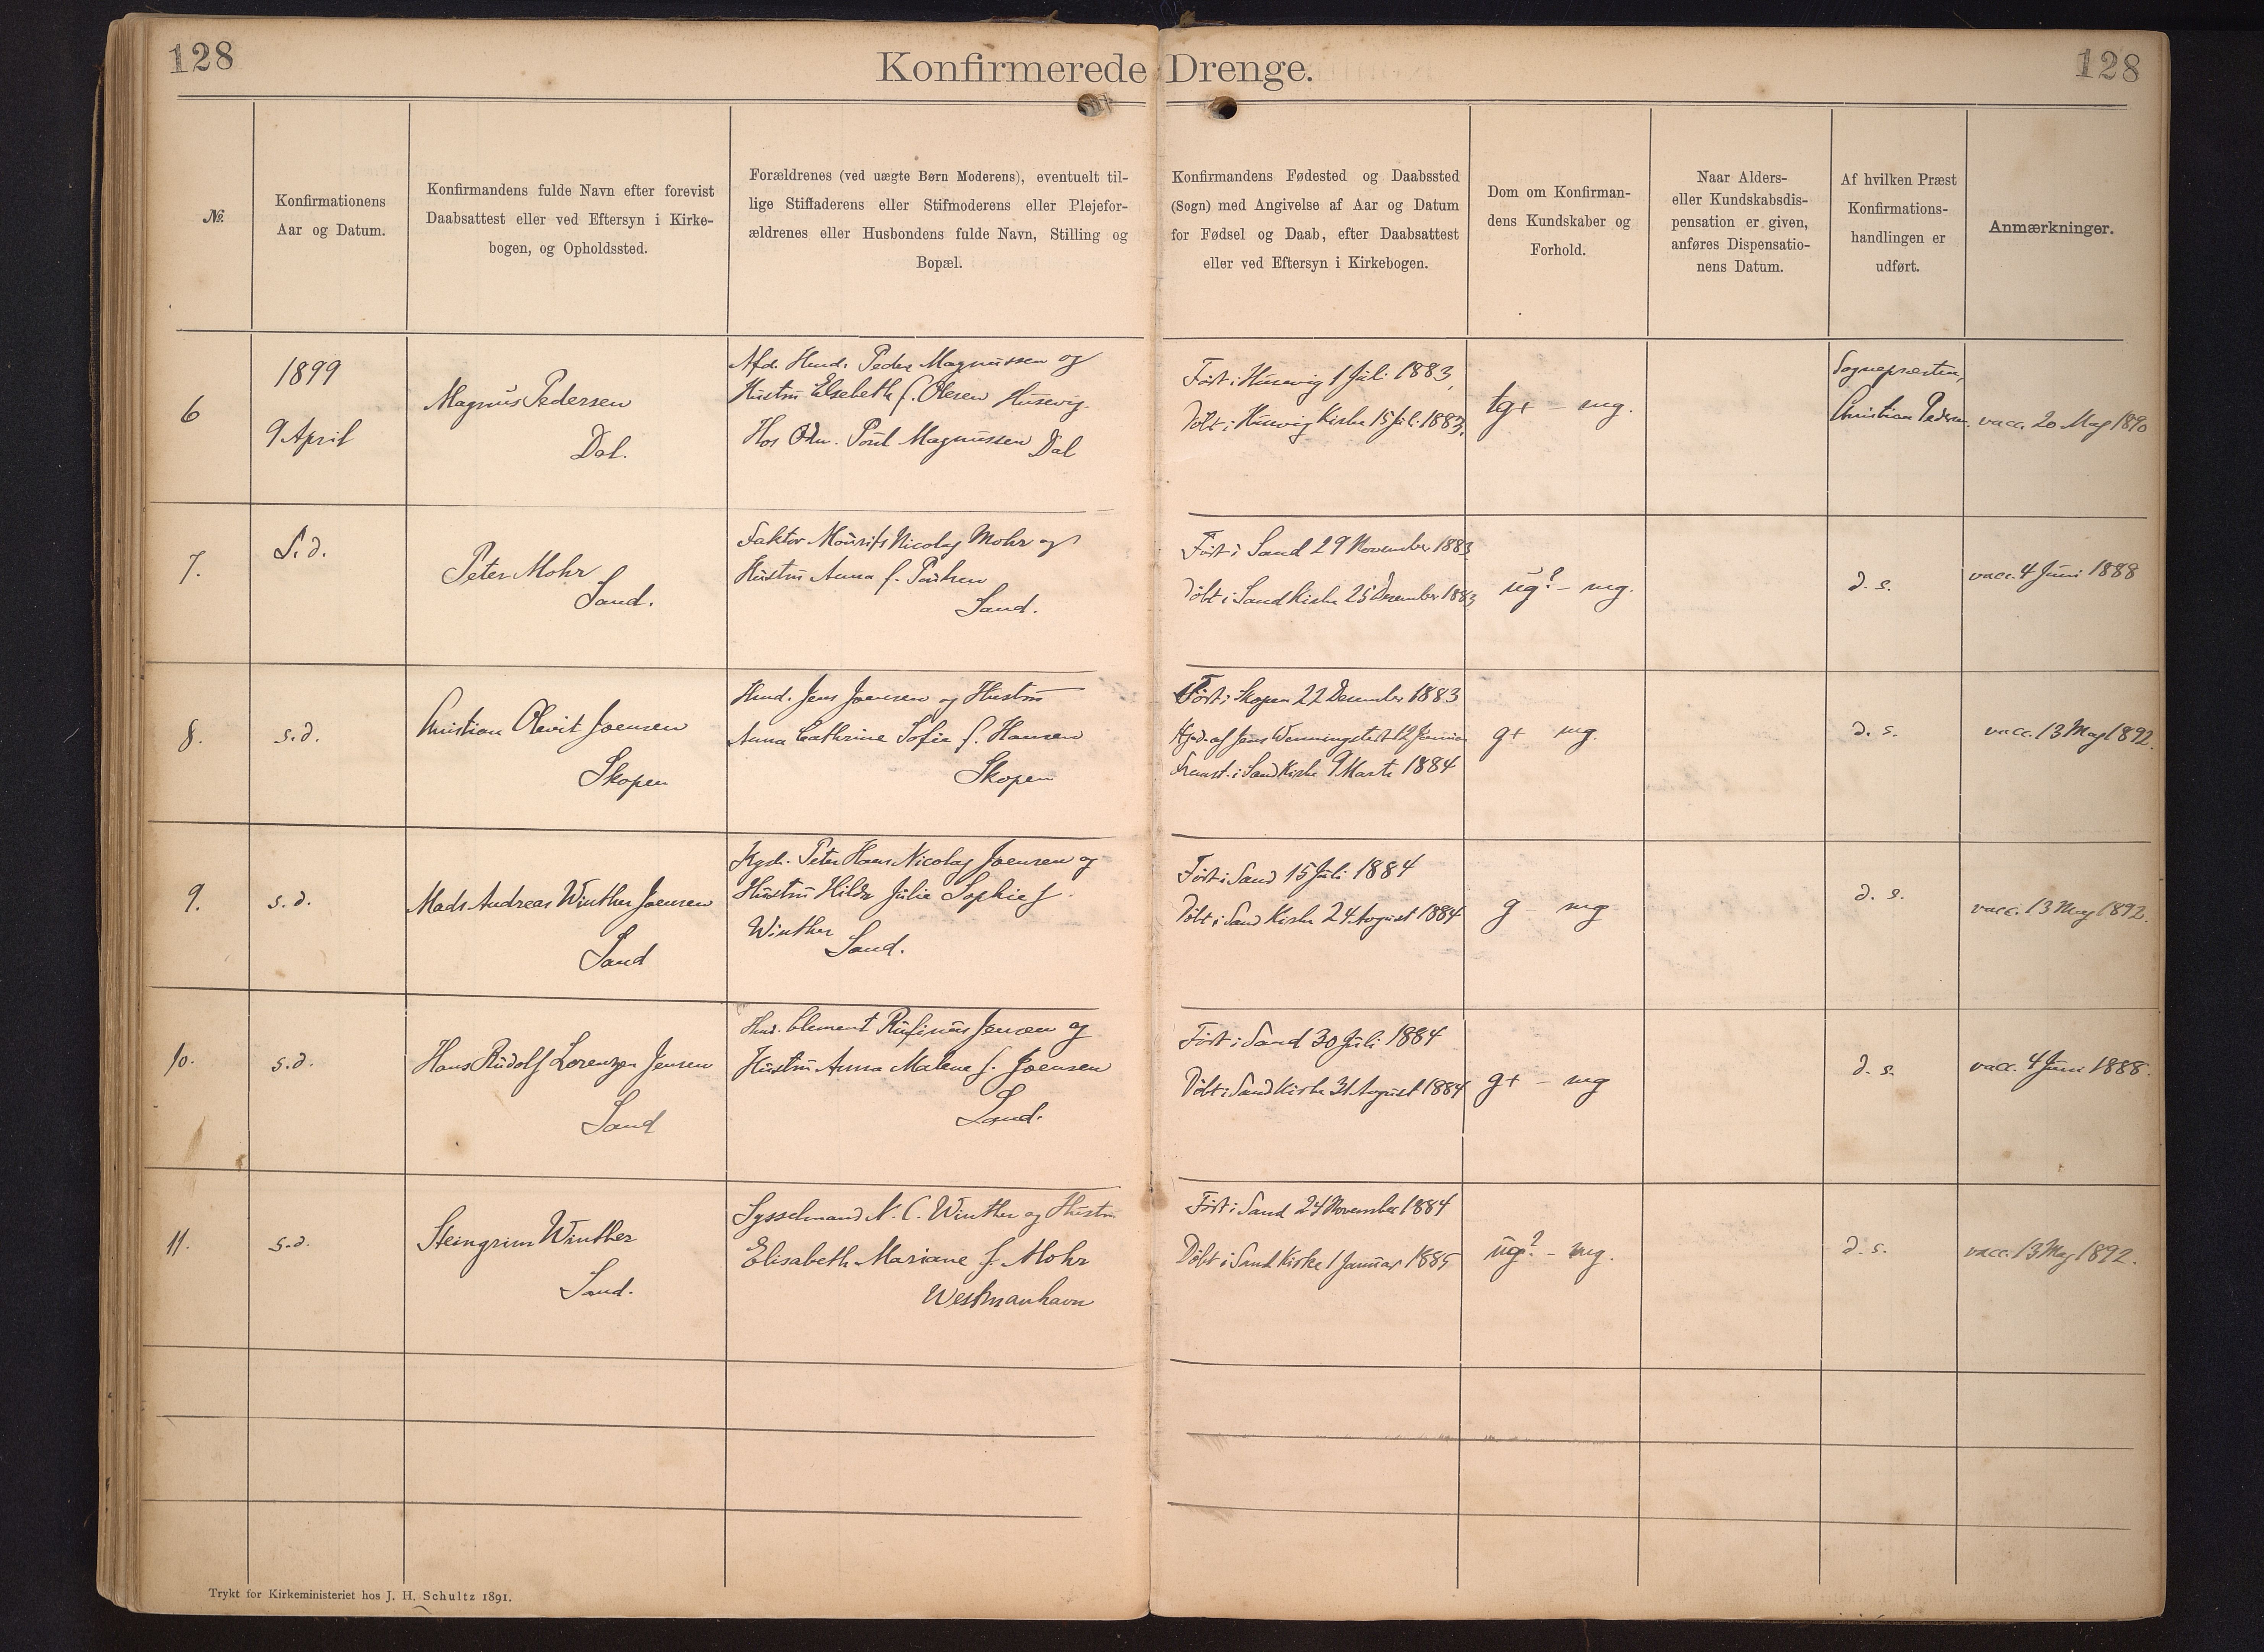 128
Konfirmerede Drenge.
128
№.
Konfirmationens
Aar og Datum.
Konfirmandens fulde Navn efter forevist
Daabsattest eller ved Eftersyn i Kirke-
bogen, og Opholdssted.
Forældrenes (ved uægte Børn Moderens), eventuelt til-
lige Stiffaderens eller Stifmoderens eller Plejefor-
ældrenes eller Husbondens fulde Navn, Stilling og
Bopæl.
Konfirmandens Fødested og Daabssted
(Sogn) med Angivelse af Aar og Datum
for Fødsel og Daab, efter Daabsattest
eller ved Eftersyn i Kirkebogen.
Dom om Konfirman-
dens Kundskaber og
Forhold.
Naar Alders-
eller Kundskabsdis-
pensation er given,
anføres Dispensatio-
nens Datum.
Af hvilken Præst
Konfirmations-
handlingen er
udført.
Anmærkninger.
6
1899
9 April
Magnus Pedersen
Dal.
Afd. Husd. Peder Magnussen og
Hustru Elsebeth f. Olesen Husevig.
Hos Odm. Poul Magnussen Dal
Født i Husevig 1 Juli 1883,
Döbt i Husevig Kirke 15 Juli 1883.
tg+ – mg.
Sognepræsten,
Christian Pedersen.
vacc. 20 Maj 1890
7.
S. d.
Peter Mohr
Sand.
Faktor Mourits Nicolaj Mohr og
Hustru Anna f. Poulsen
Sand.
Født i Sand 29 November 1883
Döbt i Sand Kirke 25 December 1883
ug? – mg.
d. s.
vacc. 4 Juni 1888
8.
s. d.
Christian Olevit Joensen
Skopen
Husd. Jens Joensen og Hustru
Anna Cathrine Sofie f. Hansen
Skopen
Født i Skopen 22 December 1883
Hjd. af Jens Wenningstedt 12 Januar
Fremst. i Sand Kirke 9 Marts 1884
g+ mg.
d. s.
vacc. 13 Maj 1892.
9.
s. d.
Mads Andreas Winther Joensen
Sand
Peter Hans Nicolaj Joensen og
Hustru Hilda Julie Sophie f.
Winther
Sand.
Født i Sand 15 Juli 1884
Döbt i Sand Kirke 24 August 1884
g – mg
d. s.
vacc. 13 Maj 1892.
10.
s. d.
Hans Rudolf Lorenzen Jensen
Sand
Husd. Clement Rufinus Jensen og
Hustru Anna Malene f. Joensen
Sand.
Født i Sand 30 Juli 1884
Döbt i Sand Kirke 31 August 1884
g+ – mg
d. s.
vacc. 4 Juni 1888.
11.
s. d.
Steingrim Winther
Sand.
Sysselmand N. C. Winther og Hustru
Elisabeth Mariane f. Mohr
Westmanhavn
Født i Sand 24 November 1884
Döbt i Sand Kirke 1 Januar 1885
ug? – mg.
d. s.
vacc. 13 Maj 1892.
Trykt for Kirkeministeriet hos J. H. Schultz 1891.